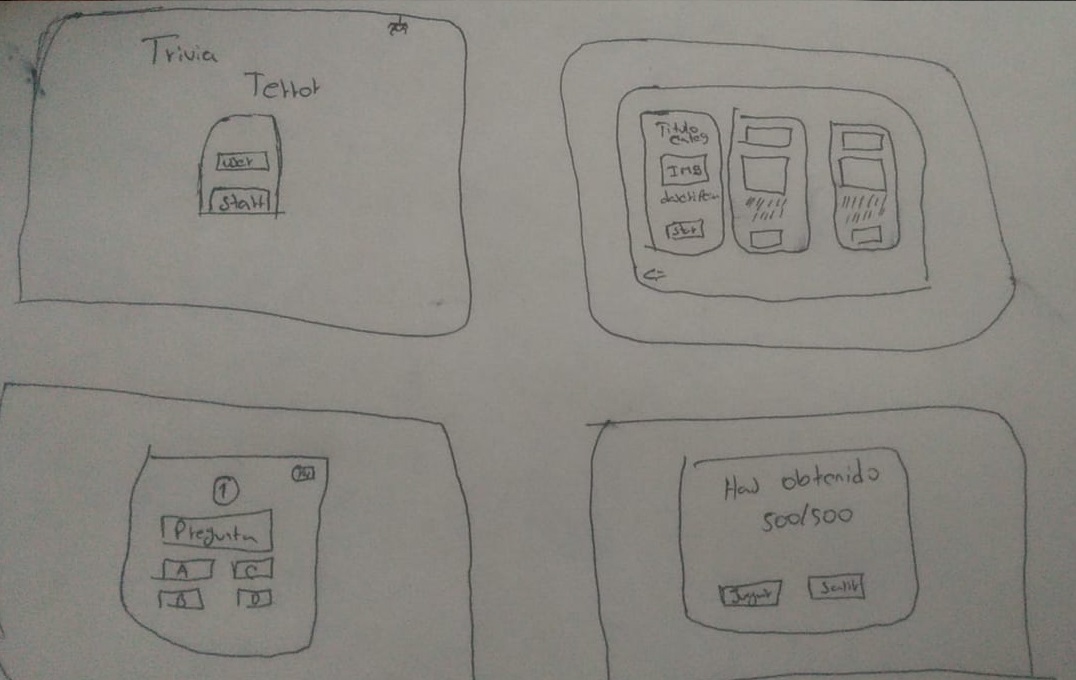 Trivia
Terror
user
Start
Titulo
categ
IMG
descripcion
Star
1
Pregunta
A
C
B
D
Has obtenido
500/500
Jugar
Salir